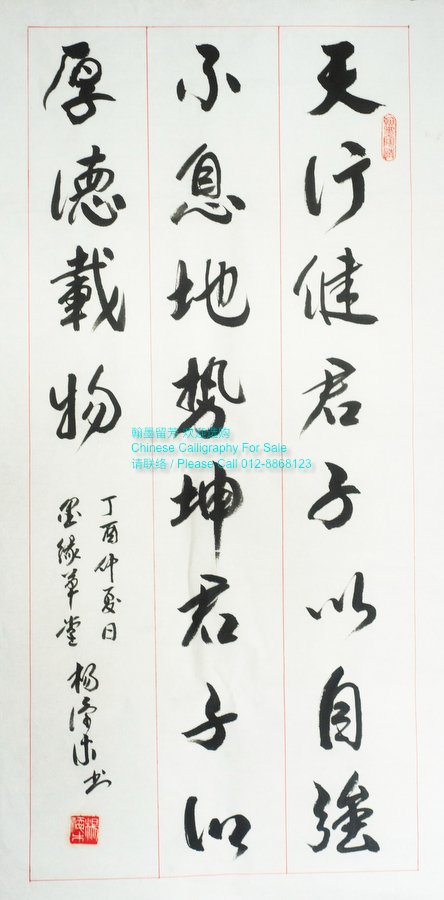 天行健君子以自強
不息地势坤君子以
厚德載物
丁酉仲夏日
墨緣草堂
楊
书
翰墨留芳 欢迎选购
Chinese Calligraphy For Sale
请联络 / Please Call 012-8868123